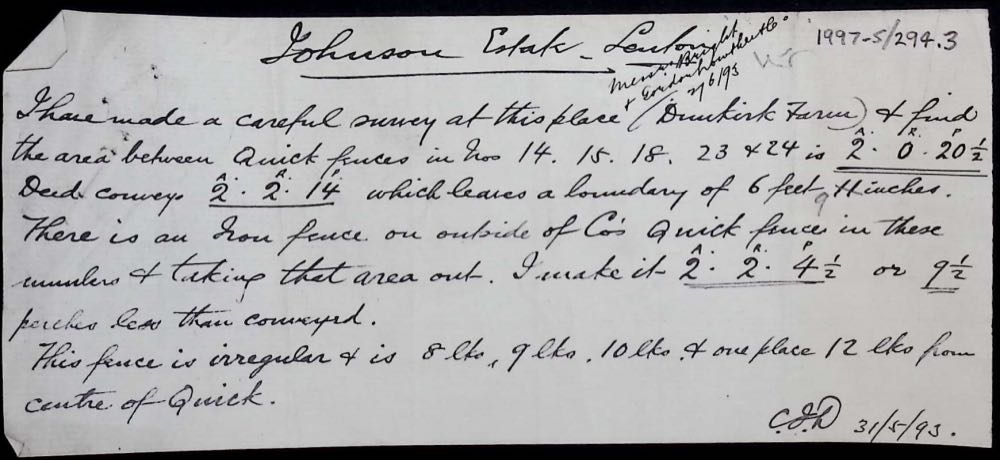 Johnson Estate - Lenton
1997-5/294.3
Messrs Bright
& Gordon Lowther & Co
2/6/93
I have made a careful survey at this place (Dunkirk Farm) & find
the area between Quick fences in Nos 14. 15. 18. 23 & 24 is 2 A. 0 R. 20½ P
Deed conveys 2 A. 2 R. 14 P which leaves a boundary of 6 feet 4 inches.
There is an Iron fence on outside of Co's Quick fence in these
numbers & taking that area out. I make it 2 A. 2 R. 4½ P or 9½
perches less than conveyed.
This fence is irregular & is 8 lks, 9 lks, 10 lks & one place 12 lks from
centre of Quick.
31/5/93.